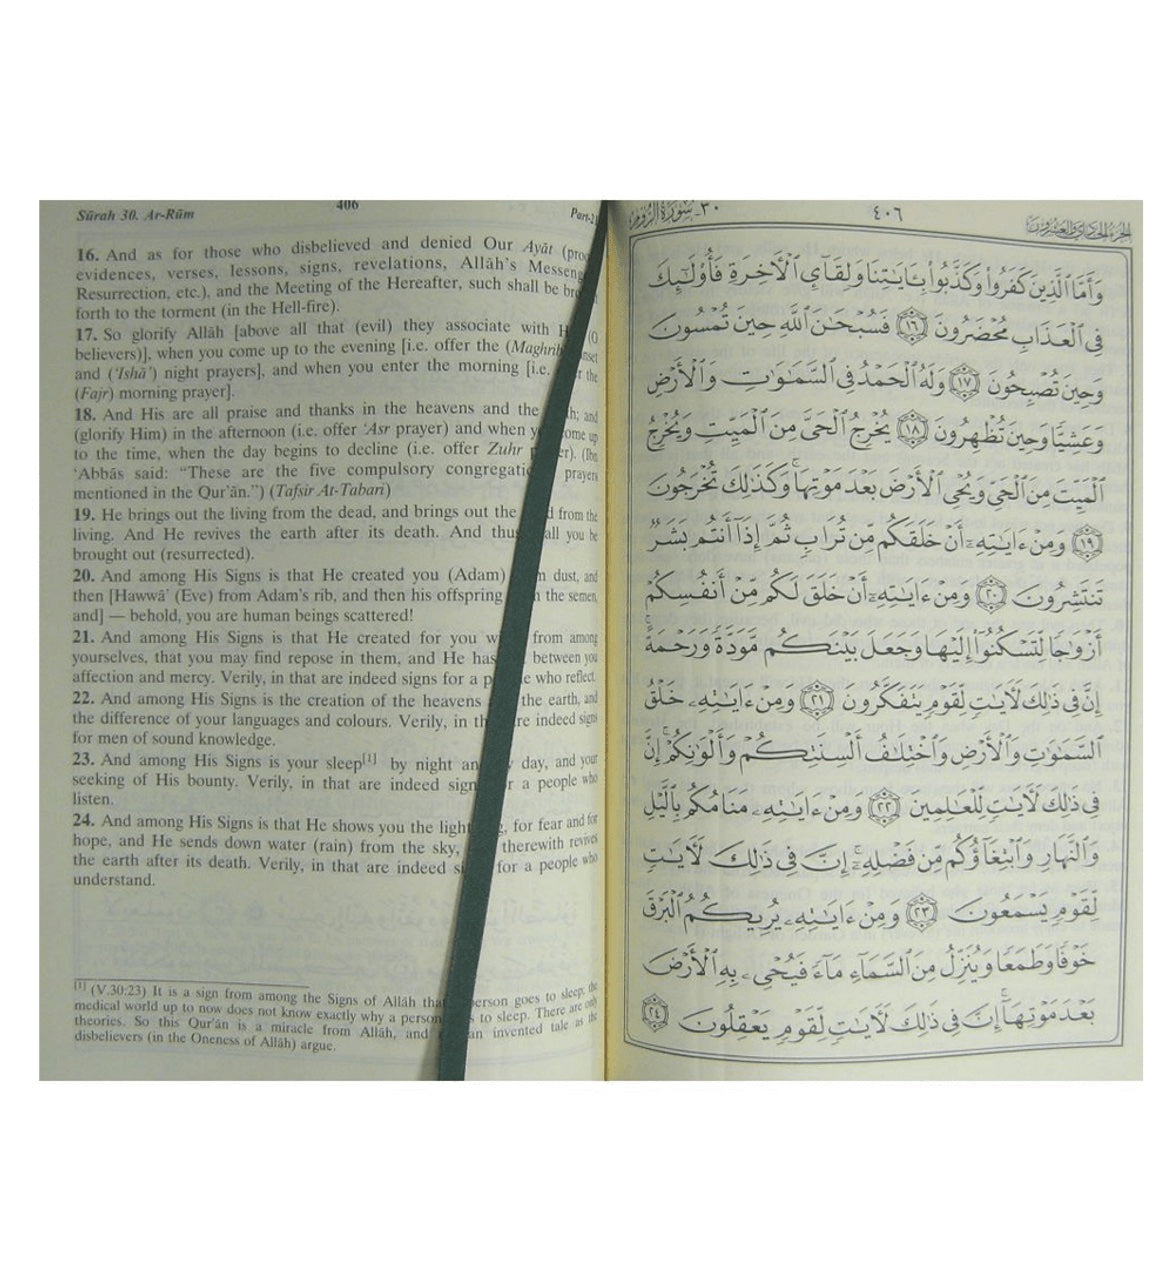 Sūrah 30. Ar-Rūm
406
Part-21
16. And as for those who disbelieved and denied Our Ayāt (proo
evidences, verses, lessons, signs, revelations, Allāh's Messeng
Resurrection, etc.), and the Meeting of the Hereafter, such shall be br
forth to the torment (in the Hell-fire).
17. So glorify Allāh [above all that (evil) they associate with H (O
believers)], when you come up to the evening [i.e. offer the (Maghrib nset
and ('Ishā') night prayers], and when you enter the morning [i.e. r the
(Fajr) morning prayer].
18. And His are all praise and thanks in the heavens and the th; and
(glorify Him) in the afternoon (i.e. offer 'Asr prayer) and when y come up
to the time, when the day begins to decline (i.e. offer Zuhr p er). (Ibn
'Abbās said: "These are the five compulsory congregatio prayers
mentioned in the Qur'ān.") (Tafsir At-Tabari)
19. He brings out the living from the dead, and brings out the d from the
living. And He revives the earth after its death. And thus all you be
brought out (resurrected).
20. And among His Signs is that He created you (Adam) m dust, and
then [Hawwā' (Eve) from Adam's rib, and then his offspring the semen,
and] — behold, you are human beings scattered!
21. And among His Signs is that He created for you w from among
yourselves, that you may find repose in them, and He has between you
affection and mercy. Verily, in that are indeed signs for a p e who reflect.
22. And among His Signs is the creation of the heavens the earth, and
the difference of your languages and colours. Verily, in th re indeed signs
for men of sound knowledge.
23. And among His Signs is your sleep[1] by night an y day, and your
seeking of His bounty. Verily, in that are indeed sign r a people who
listen.
24. And among His Signs is that He shows you the light g, for fear and for
hope, and He sends down water (rain) from the sky, therewith revives
the earth after its death. Verily, in that are indeed s for a people who
understand.
[1] (V.30:23) It is a sign from among the Signs of Allāh that erson goes to sleep; the
medical world up to now does not know exactly why a person s to sleep. There are only
theories. So this Qur'ān is a miracle from Allāh, and n an invented tale as the
disbelievers (in the Oneness of Allāh) argue.
٣٠- سورة الروم
٤٠٦
الجزء الحادي والعشرون
وَأَمَّا ٱلَّذِينَ كَفَرُوا۟ وَكَذَّبُوا۟ بِـَٔايَـٰتِنَا وَلِقَآئِ ٱلْـَٔاخِرَةِ فَأُو۟لَـٰٓئِكَ
فِى ٱلْعَذَابِ مُحْضَرُونَ ١٦ فَسُبْحَـٰنَ ٱللَّهِ حِينَ تُمْسُونَ
وَحِينَ تُصْبِحُونَ ١٧ وَلَهُ ٱلْحَمْدُ فِى ٱلسَّمَـٰوَٰتِ وَٱلْأَرْضِ
وَعَشِيًّا وَحِينَ تُظْهِرُونَ ١٨ يُخْرِجُ ٱلْحَىَّ مِنَ ٱلْمَيِّتِ وَيُخْرِجُ
ٱلْمَيِّتَ مِنَ ٱلْحَىِّ وَيُحْىِ ٱلْأَرْضَ بَعْدَ مَوْتِهَا ۚ وَكَذَٰلِكَ تُخْرَجُونَ
١٩ وَمِنْ ءَايَـٰتِهِۦٓ أَنْ خَلَقَكُم مِّن تُرَابٍ ثُمَّ إِذَآ أَنتُم بَشَرٌ
تَنتَشِرُونَ ٢٠ وَمِنْ ءَايَـٰتِهِۦٓ أَنْ خَلَقَ لَكُم مِّنْ أَنفُسِكُمْ
أَزْوَٰجًا لِّتَسْكُنُوٓا۟ إِلَيْهَا وَجَعَلَ بَيْنَكُم مَّوَدَّةً وَرَحْمَةً ۚ
إِنَّ فِى ذَٰلِكَ لَـَٔايَـٰتٍ لِّقَوْمٍ يَتَفَكَّرُونَ ٢١ وَمِنْ ءَايَـٰتِهِۦ خَلْقُ
ٱلسَّمَـٰوَٰتِ وَٱلْأَرْضِ وَٱخْتِلَـٰفُ أَلْسِنَتِكُمْ وَأَلْوَٰنِكُمْ ۚ إِنَّ
فِى ذَٰلِكَ لَـَٔايَـٰتٍ لِّلْعَـٰلِمِينَ ٢٢ وَمِنْ ءَايَـٰتِهِۦ مَنَامُكُم بِٱلَّيْلِ
وَٱلنَّهَارِ وَٱبْتِغَآؤُكُم مِّن فَضْلِهِۦٓ ۚ إِنَّ فِى ذَٰلِكَ لَـَٔايَـٰتٍ
لِّقَوْمٍ يَسْمَعُونَ ٢٣ وَمِنْ ءَايَـٰتِهِۦ يُرِيكُمُ ٱلْبَرْقَ
خَوْفًا وَطَمَعًا وَيُنَزِّلُ مِنَ ٱلسَّمَآءِ مَآءً فَيُحْىِۦ بِهِ ٱلْأَرْضَ
بَعْدَ مَوْتِهَآ ۚ إِنَّ فِى ذَٰلِكَ لَـَٔايَـٰتٍ لِّقَوْمٍ يَعْقِلُونَ ٢٤